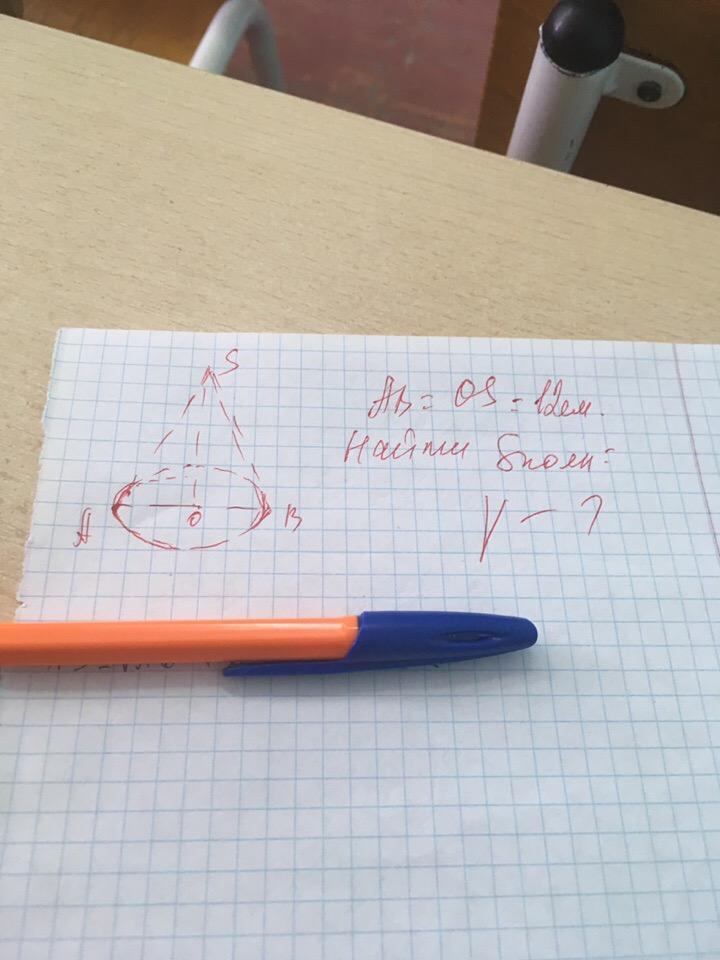 S
A O B
AB = OS = 12см.
Найти Sполн =
V - ?